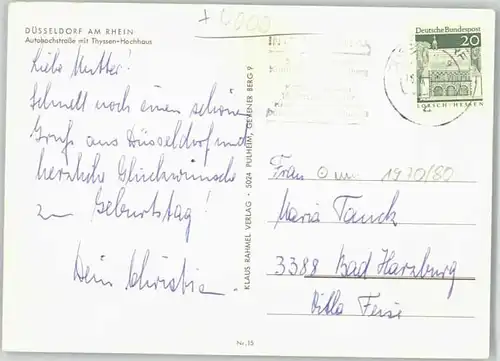 + 4000
DÜSSELDORF AM RHEIN
Autohochstraße mit Thyssen-Hochhaus
Liebe Mutter!
Schnell noch einen schönen
Gruß aus Düsseldorf und
herzliche Glückwünsche
zum Geburtstag!
Dein Christian
KLAUS RAHMEL VERLAG · 5024 PULHEIM, GEYENER BERG 9
Deutsche Bundespost
20
LORSCH/HESSEN
Frau 1970/80
Maria Tanck
3388 Bad Harzburg
Villa Feise
Nr. 15